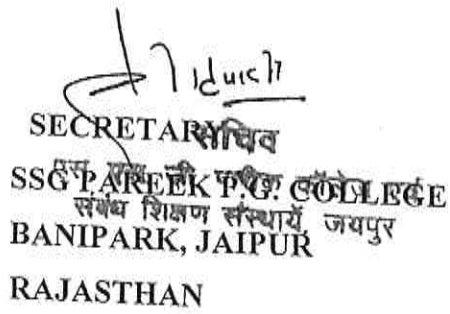 SECRETARY
सचिव
SSG PAREEK P.G. COLLEGE
संबंध शिक्षण संस्थायें, जयपुर
BANIPARK, JAIPUR
RAJASTHAN